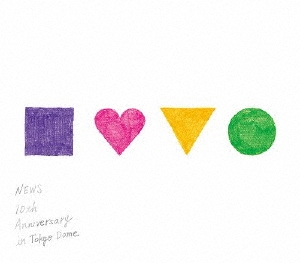 NEWS
10th
Anniversary
in Tokyo Dome